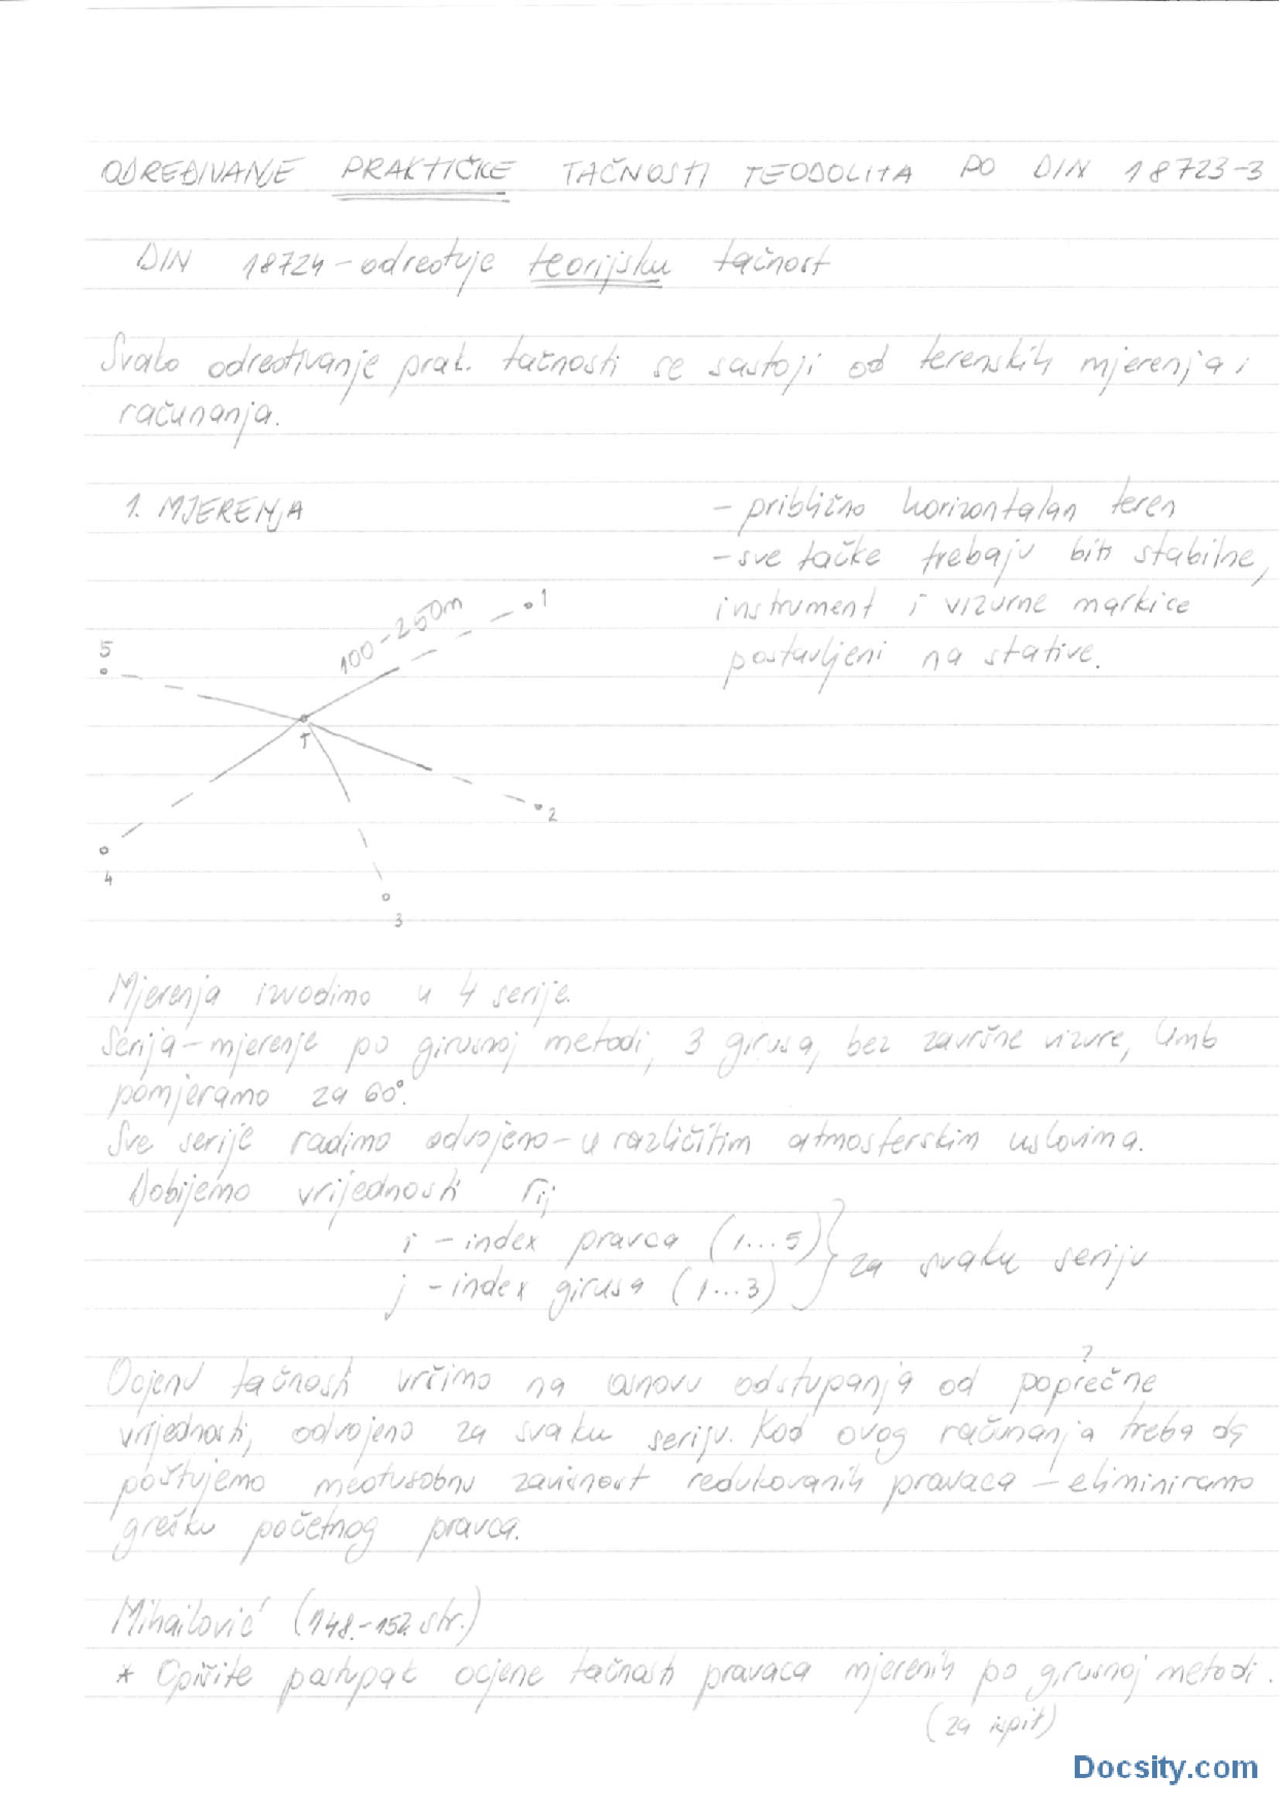 ODREĐIVANJE PRAKTIČKE TAČNOSTI TEODOLITA PO DIN 18723-3
DIN 18724 - određuje teorijsku tačnost
Svako određivanje prak. tačnosti se sastoji od terenskih mjerenja i
računanja.
1. MJERENJA
- približno horizontalan teren
- sve tačke trebaju biti stabilne,
instrument i vizurne markice
postavljeni na stative.
100-250m
1
5
T
2
4
3
Mjerenja izvodimo u 4 serije.
Serija - mjerenje po girusnoj metodi, 3 girusa, bez završne vizure, limb
pomjeramo za 60°.
Sve serije radimo odvojeno - u različitim atmosferskim uslovima.
Dobijemo vrijednosti rij
i - index pravca (1...5)
j - index girusa (1...3)
za svaku seriju
?
Ocjenu tačnosti vršimo na osnovu odstupanja od poprečne
vrijednosti, odvojeno za svaku seriju. Kod ovog računanja treba da
poštujemo međusobnu zavisnost redukovanih pravaca - eliminiramo
grešku početnog pravca.
Mihailović (148.-152. str.)
* Opišite postupak ocjene tačnosti pravaca mjerenih po girusnoj metodi.
(za ispit)
Docsity.com